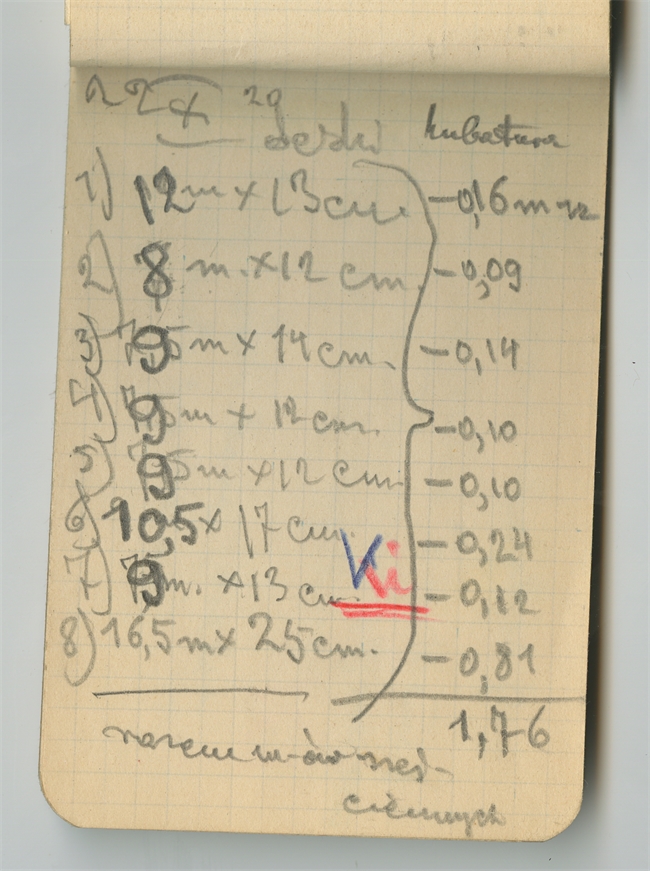 22 X 20 deski kubatura
1) 12m x 13cm. -0,16 m
2) 8 m. x 12 cm. -0,09
3) 9 m x 14 cm. -0,14
4) 9 m x 12 cm. -0,10
5) 9 m x 12 cm. -0,10
6) 10,5 x 17 cm. -0,24
7) 9 m. x 13 cm. -0,12
Ki
8) 16,5 m x 25 cm. -0,81
1,76
razem m-ów sześ-
ciennych